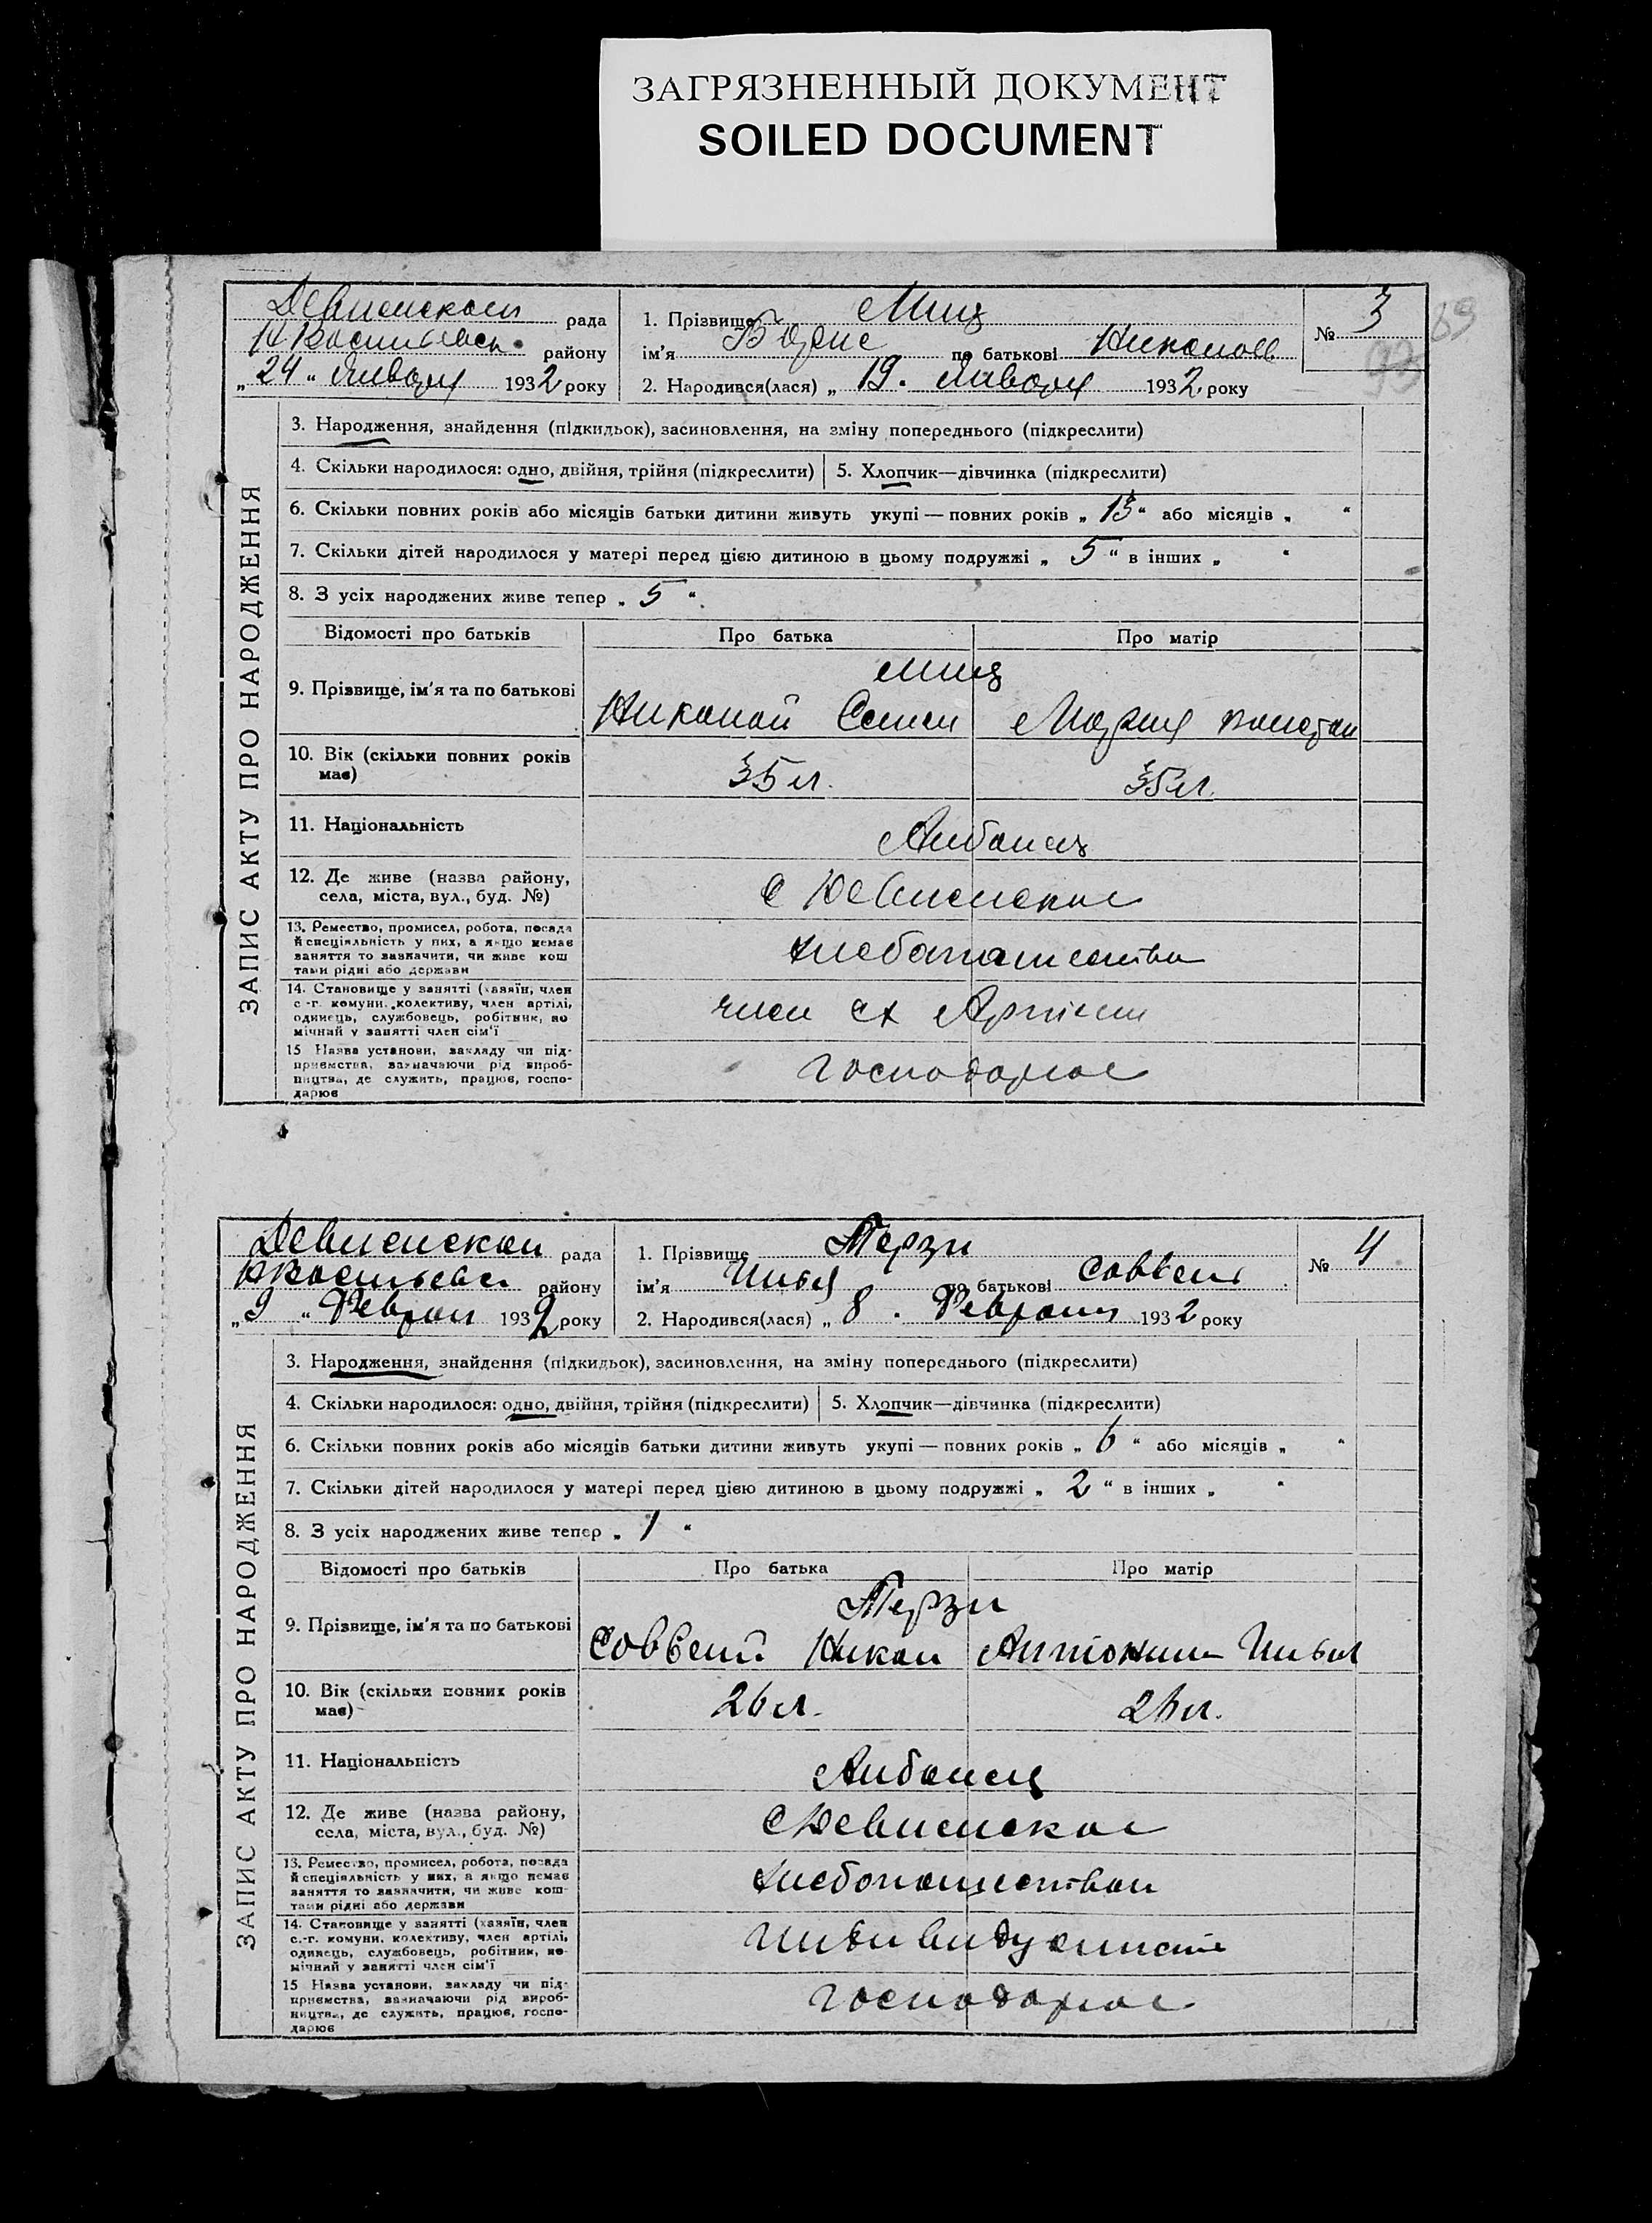 ЗАГРЯЗНЕННЫЙ ДОКУМЕНТ
SOILED DOCUMENT
Девненской рада
району
„ 24 “ Января 1932 року
1. Прізвище Миц
ім'я Борис по батькові Николаев
2. Народився(лася) „ 19. Января 1932 року
№ 3
89
93
ЗАПИС АКТУ ПРО НАРОДЖЕННЯ
3. Народження, знайдення (підкидьок), засиновлення, на зміну попереднього (підкреслити)
4. Скільки народилося: одно, двійня, трійня (підкреслити) 5. Хлопчик—дівчинка (підкреслити)
6. Скільки повних років або місяців батьки дитини живуть укупі — повних років „ 13 “ або місяців „ “
7. Скільки дітей народилося у матері перед цією дитиною в цьому подружжі „ 5 “ в інших „ “
8. З усіх народжених живе тепер „ 5 “
Відомості про батьків Про батька Про матір
Миц
9. Прізвище, ім'я та по батькові Николай Семен Мария Констан
10. Вік (скільки повних років має) 35 л. 35 л.
11. Національність Албанец
12. Де живе (назва району, села, міста, вул., буд. №) С Девненское
13. Ремество, промисел, робота, посада
й спеціяльність у них, а якщо немає
заняття то зазначити, чи живе кош
тами рідні або держави
Хлебопашество
14. Становище у занятті (хазяїн, член
с.-г. комуни, колективу, член артілі,
одинець, службовець, робітник, по
мічний у занятті член сім'ї
член СХ Артели
15 Назва установи, закладу чи під-
приємства, зазначаючи рід вироб-
ництва, де служить, працює, госпо-
дарює
Господарює
Девненской рада
району
„ 9 “ Феврал 1932 року
1. Прізвище Терзи
ім'я Илья по батькові Саввели
2. Народився(лася) „ 8. Февраля 1932 року
№ 4
ЗАПИС АКТУ ПРО НАРОДЖЕННЯ
3. Народження, знайдення (підкидьок), засиновлення, на зміну попереднього (підкреслити)
4. Скільки народилося: одно, двійня, трійня (підкреслити) 5. Хлопчик—дівчинка (підкреслити)
6. Скільки повних років або місяців батьки дитини живуть укупі — повних років „ 6 “ або місяців „ “
7. Скільки дітей народилося у матері перед цією дитиною в цьому подружжі „ 2 “ в інших „ “
8. З усіх народжених живе тепер „ 1 “
Відомості про батьків Про батька Про матір
Терзи
9. Прізвище, ім'я та по батькові Саввели Никол Антонина Ильи
10. Вік (скільки повних років має) 26 л. 26 л.
11. Національність Албанец
12. Де живе (назва району, села, міста, вул., буд. №) С Девненское
13. Ремество, промисел, робота, посада
й спеціяльність у них, а якщо немає
заняття то зазначити, чи живе кош-
тами рідні або держави
Хлебопашество
14. Становище у занятті (хазяїн, член
с.-г. комуни, колективу, член артілі,
одинець, службовець, робітник, по-
мічний у занятті член сім'ї
Индивидуалист
15 Назва установи, закладу чи під-
приємства, зазначаючи рід вироб-
ництва, де служить, працює, госпо-
дарює
Господарює